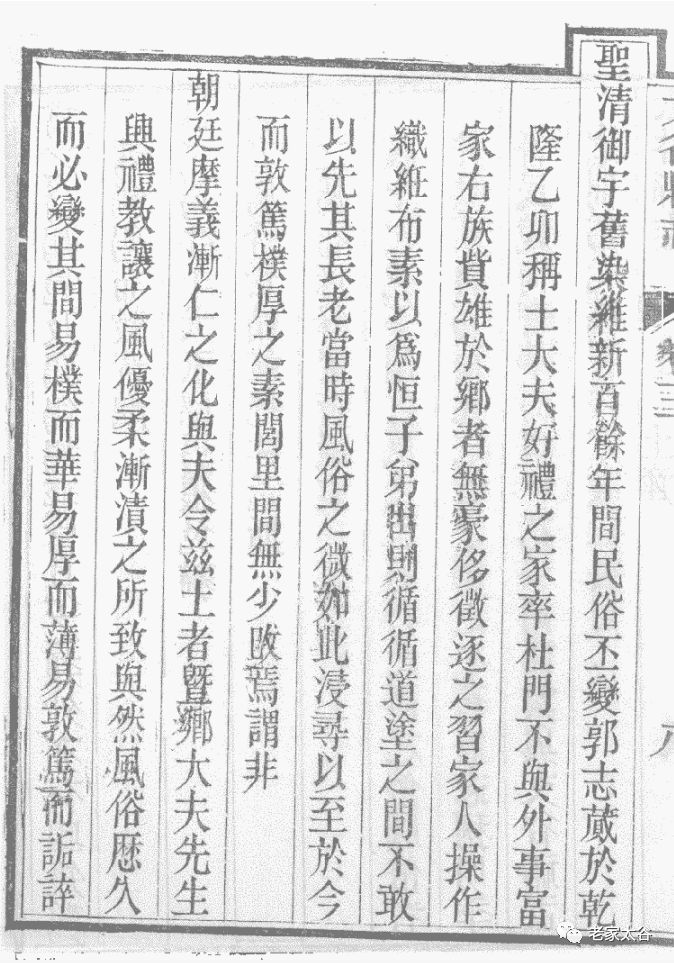 聖清御宇舊染維新百餘年間民俗丕變郭志蕆於乾
隆乙卯稱士大夫好禮之家率杜門不與外事富
家右族貲雄於鄉者無豪侈徵逐之習家人操作
織紝布素以爲恒子弟出則循循道塗之間不敢
以先其長老當時風俗之微如此浸尋以至於今
而敦篤樸厚之素閭里間無少敗焉謂非
朝廷摩義漸仁之化與夫令兹土者暨鄉大夫先生
興禮教讓之風優柔漸漬之所致與然風俗歷久
而必變其間易樸而華易厚而薄易敦篤而詬誶
老家太谷